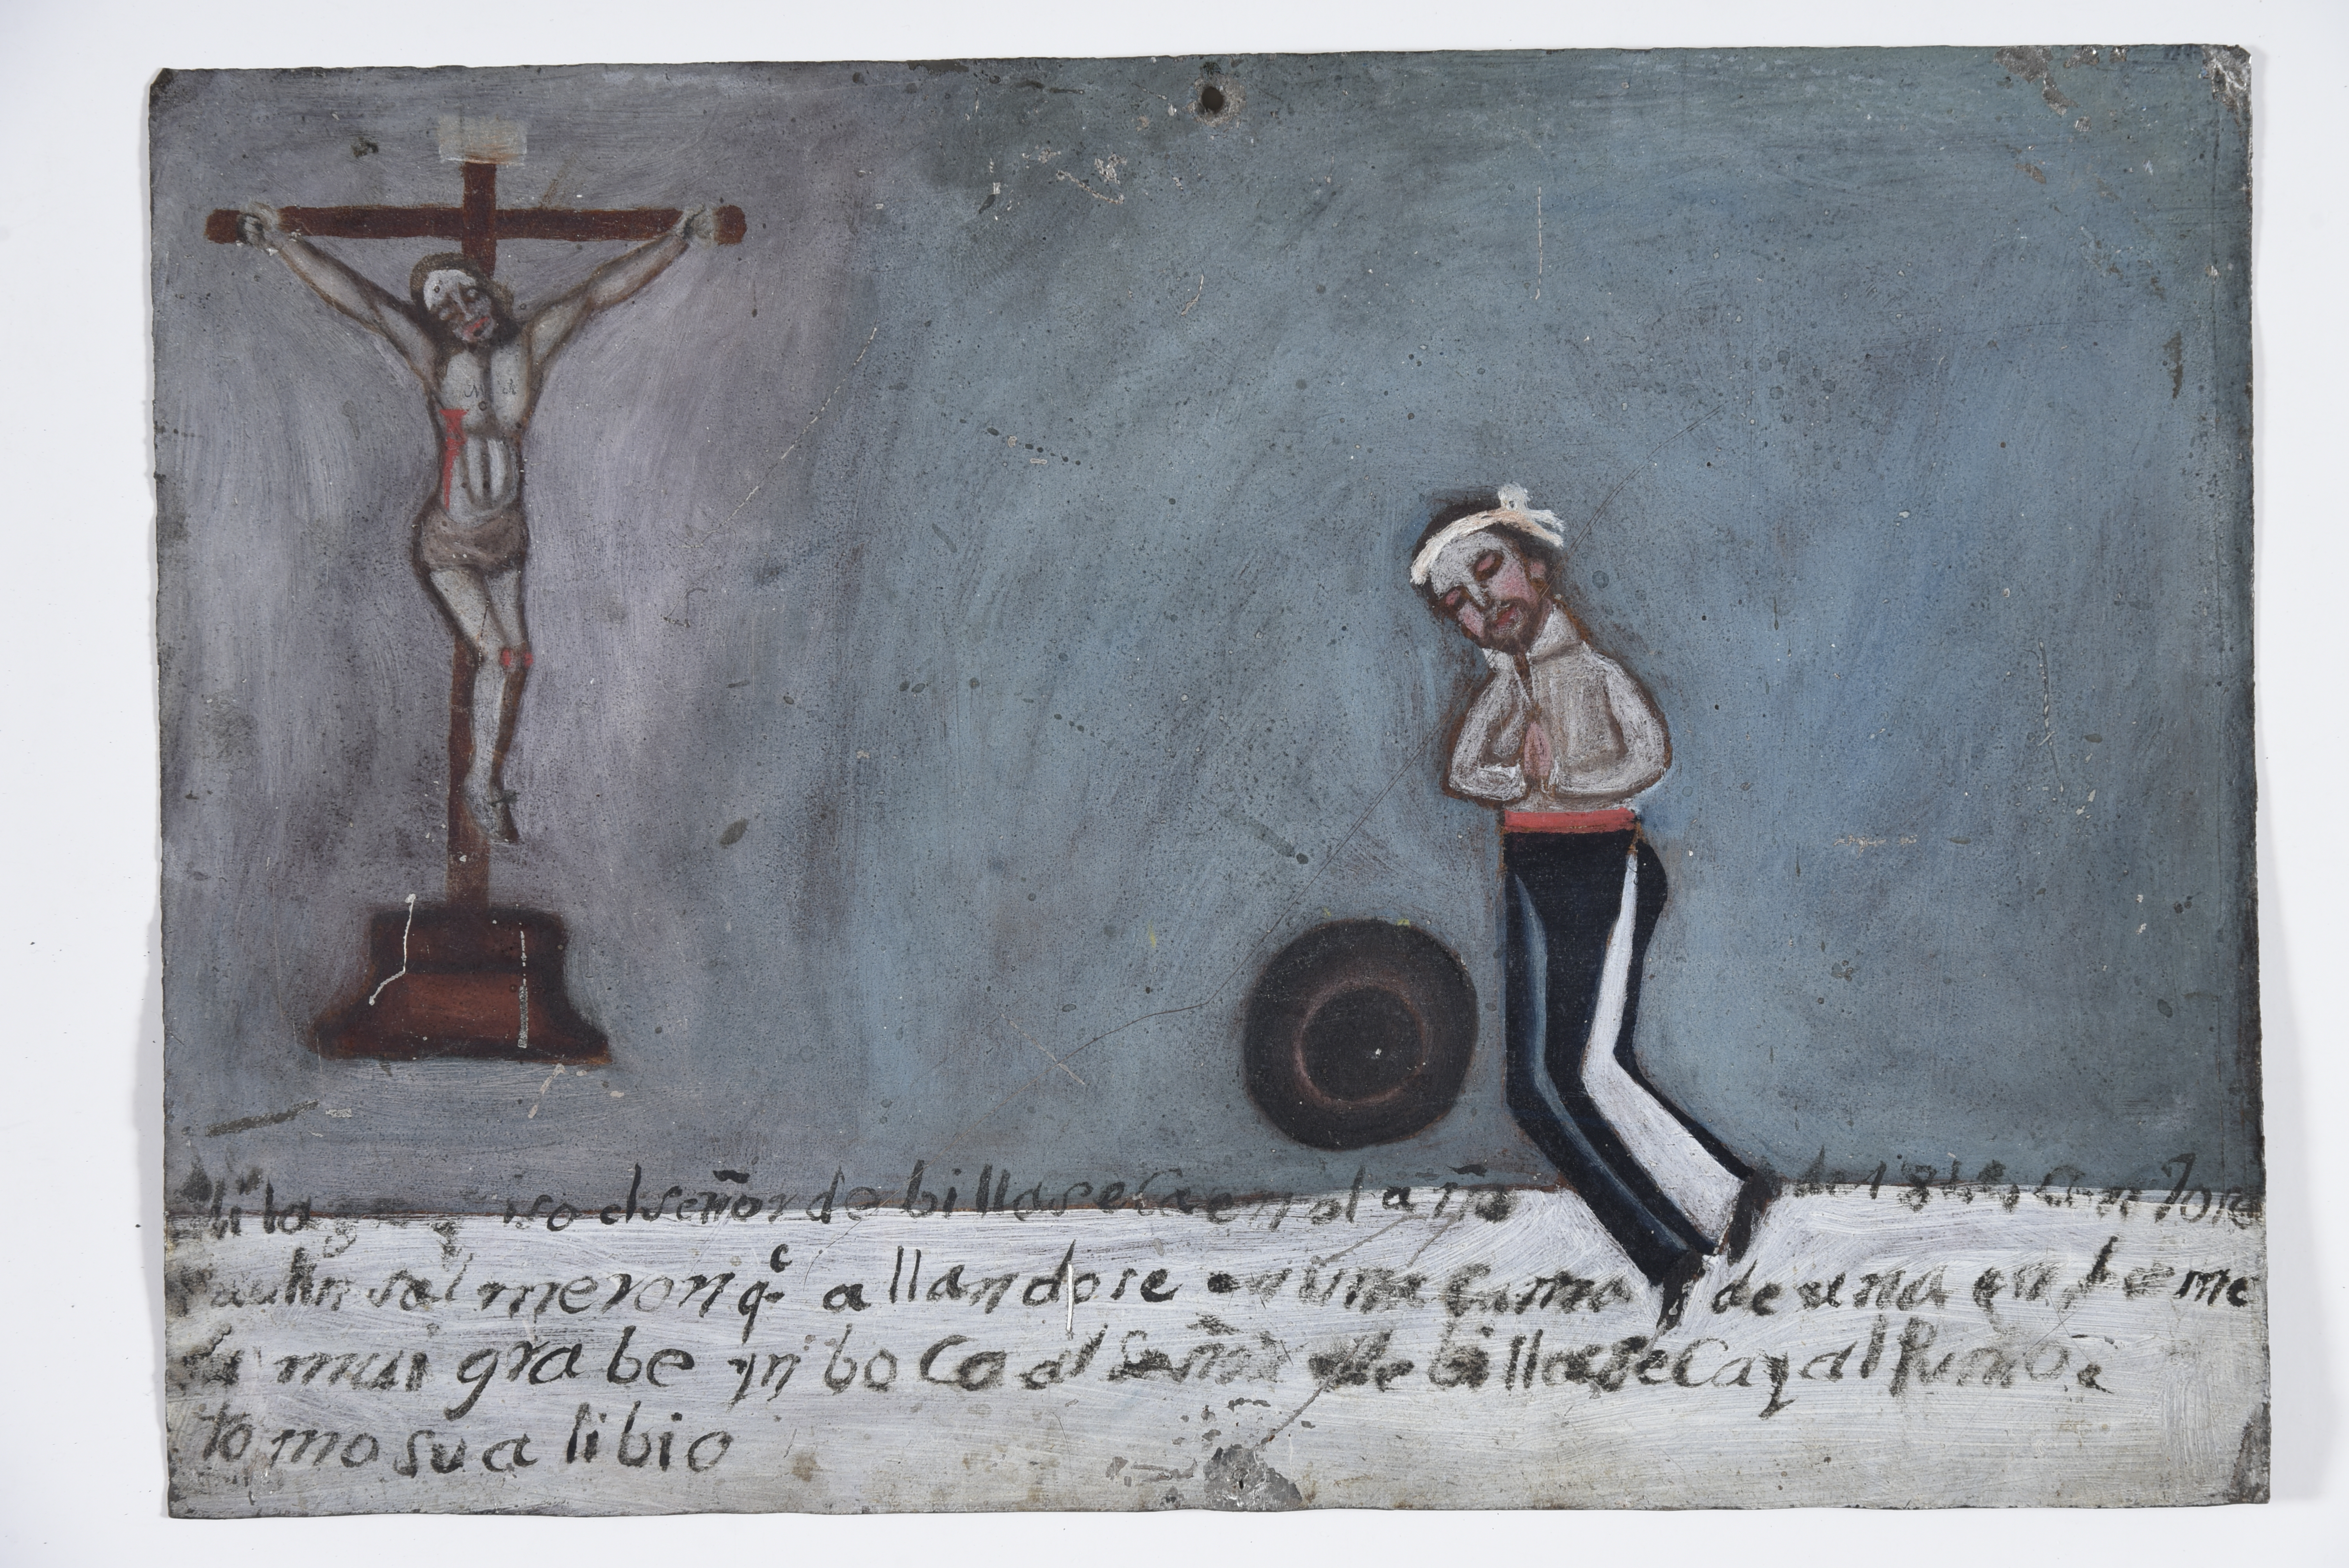 Mila iso dl señor de billaseca en el año de
Paulin salmeron q.e allandose en una cama de una enferme
da mui grabe ynboco al Señor de billaseca y al punto
tomo su alibio